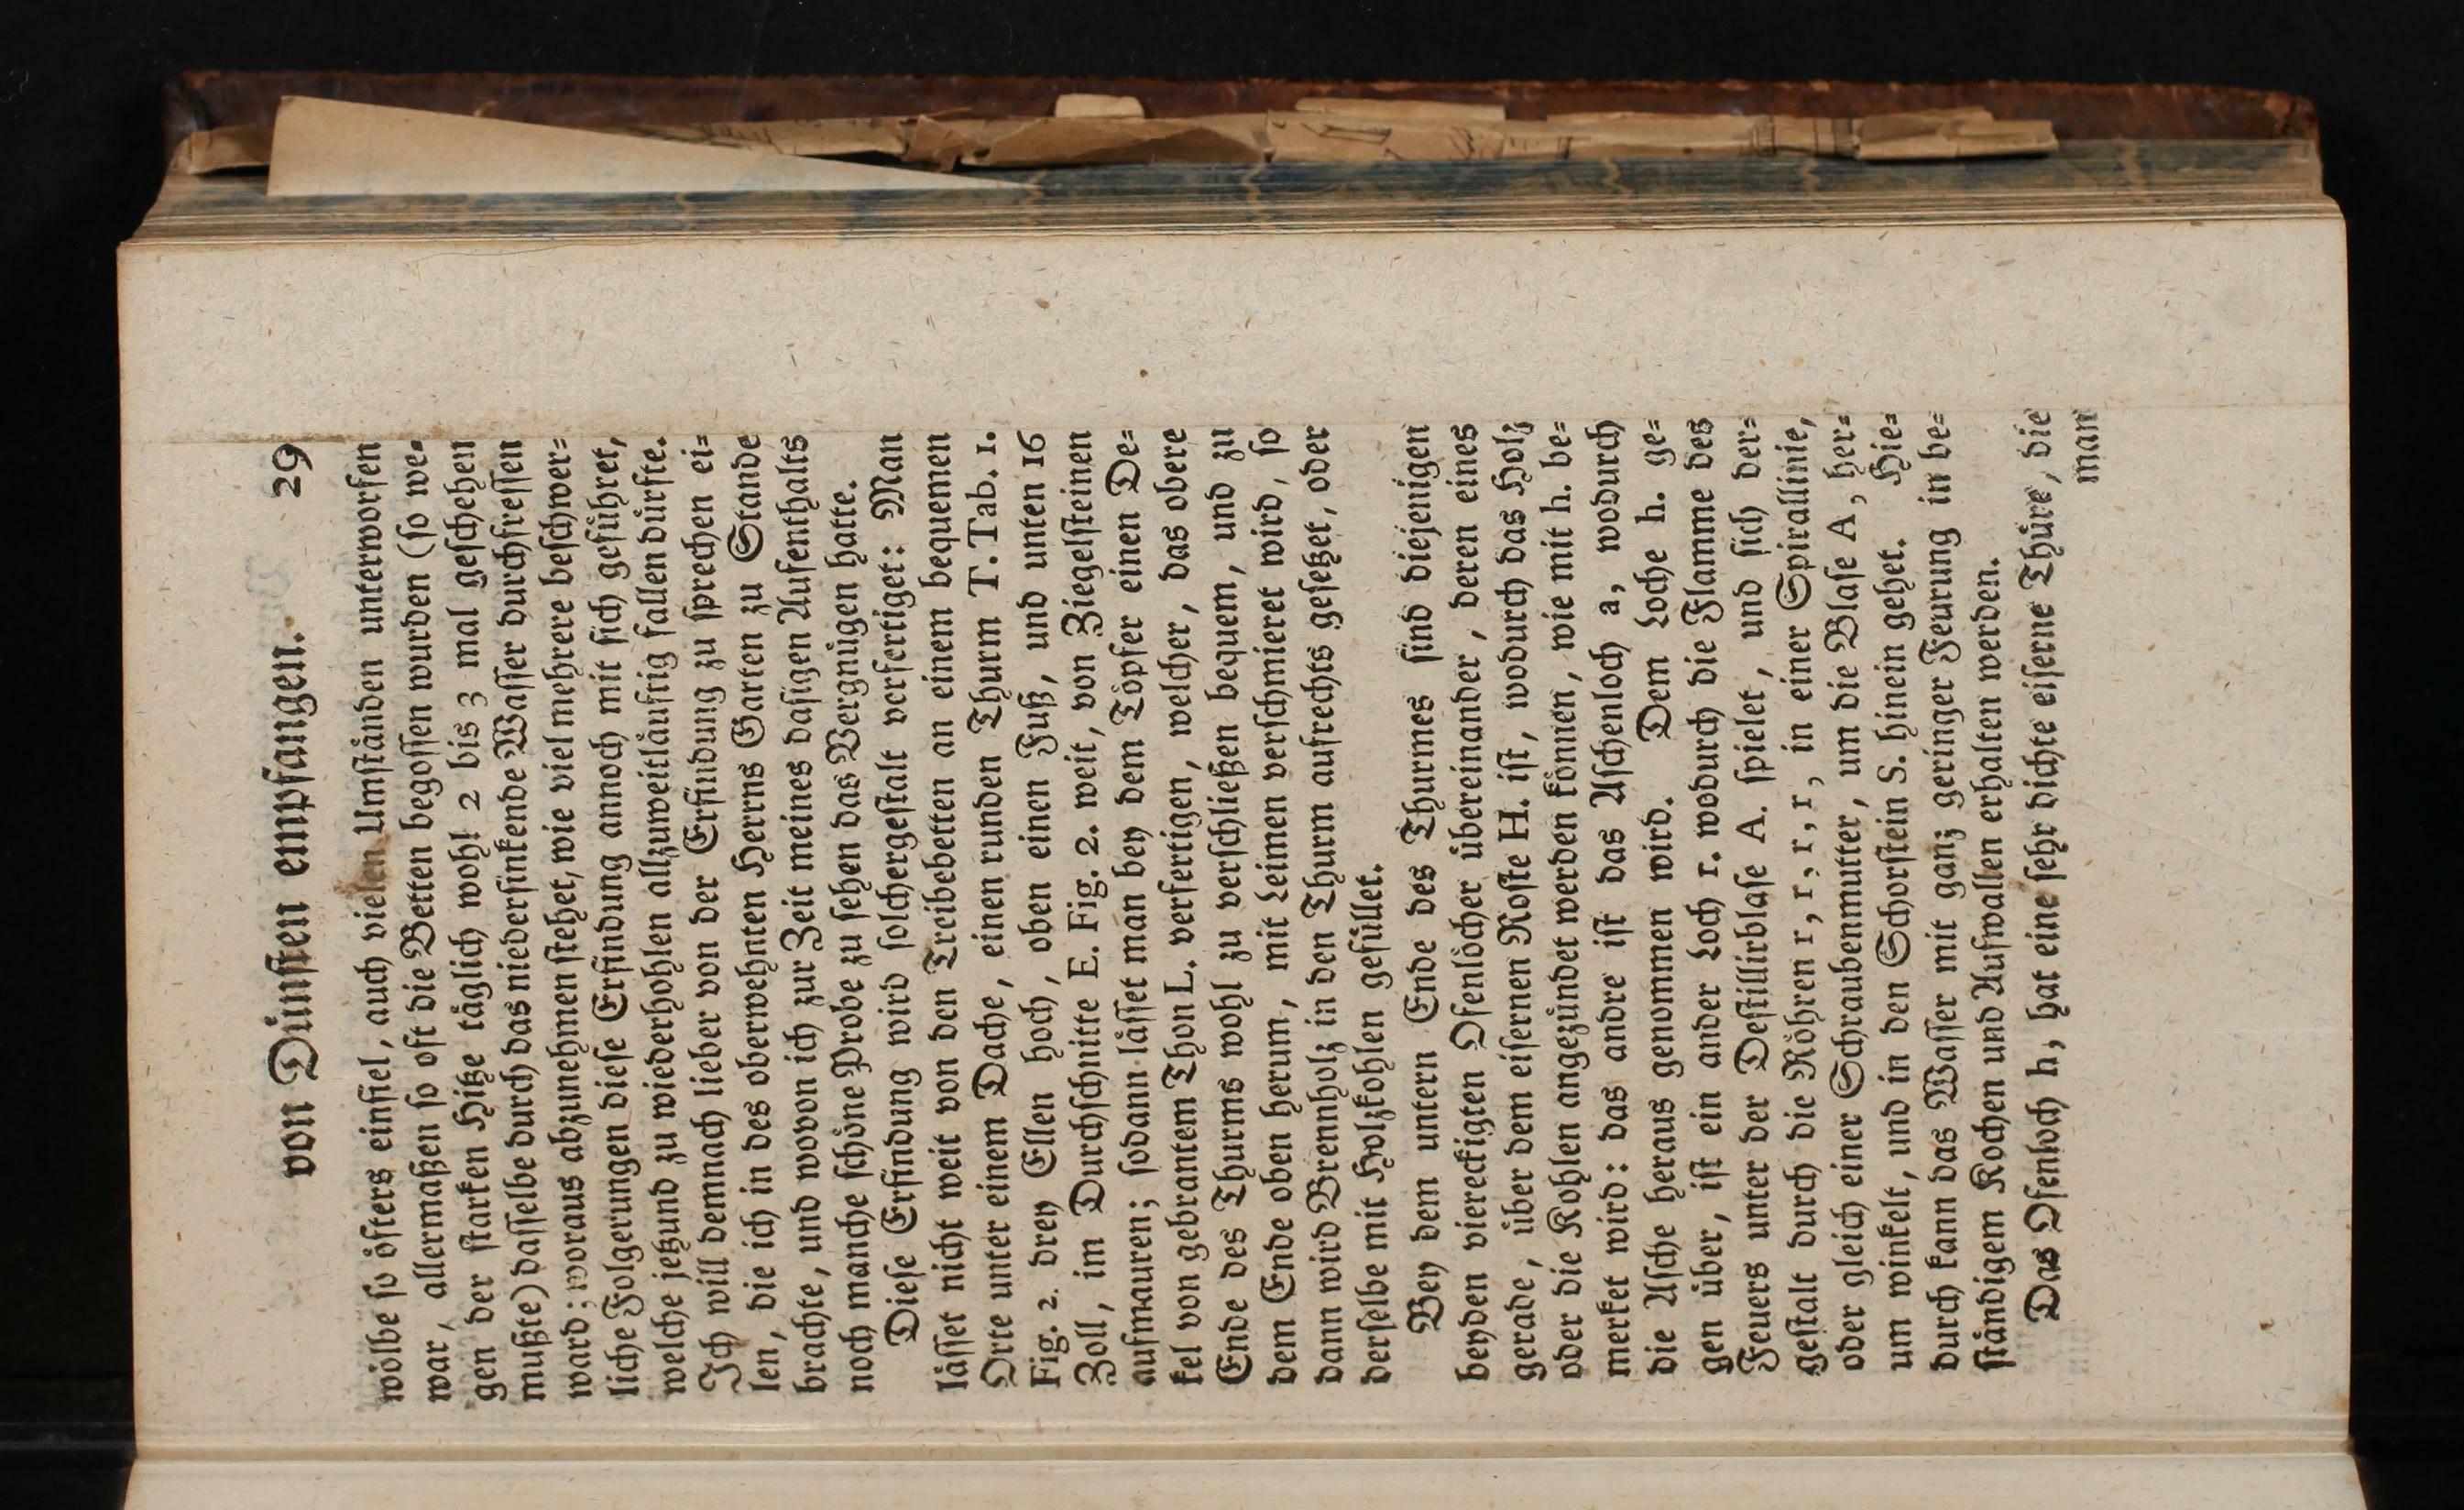 von Dünſten empfangen. 29
wölbe ſo öfters einfiel, auch vielen Umſtänden unterworfen
war, allermaßen ſo oft die Betten begoſſen wurden (ſo we-
gen der ſtarken Hitze täglich wohl 2 bis 3 mal geſchehen
mußte) daſſelbe durch das niederſinkende Waſſer durchfreſſen
ward; woraus abzunehmen ſtehet, wie viel mehrere beſchwer-
liche Folgerungen dieſe Erfindung annoch mit ſich geführet,
welche jetzund zu wiederhohlen allzuweitläuftig fallen dürfte.
Ich will demnach lieber von der Erfindung zu ſprechen ei-
len, die ich in des oberwehnten Herrns Garten zu Stande
brachte, und wovon ich zur Zeit meines daſigen Aufenthalts
noch manche ſchöne Probe zu ſehen das Vergnügen hatte.
Dieſe Erfindung wird ſolchergeſtalt verfertiget: Man
läſſet nicht weit von den Treibebetten an einem bequemen
Orte unter einem Dache, einen runden Thurm T. Tab. 1.
Fig. 2. drey Ellen hoch, oben einen Fuß, und unten 16
Zoll, im Durchſchnitte E. Fig. 2. weit, von Ziegelſteinen
aufmauren; ſodann läſſet man bey dem Töpfer einen De-
kel von gebrantem Thon L. verfertigen, welcher, das obere
Ende des Thurms wohl zu verſchließen bequem, und zu
dem Ende oben herum, mit Leimen verſchmieret wird, ſo
dann wird Brennholz in den Thurm aufrechts geſetzet, oder
derſelbe mit Holzkohlen gefüllet.
Bey dem untern Ende des Thurmes ſind diejenigen
beyden viereckigten Ofenlöcher übereinander, deren eines
gerade, über dem eiſernen Roſte H. iſt, wodurch das Holz
oder die Kohlen angezündet werden können, wie mit h. be-
merket wird: das andre iſt das Aſchenloch a, wodurch
die Aſche heraus genommen wird. Dem Loche h. ge-
gen über, iſt ein ander Loch r. wodurch die Flamme des
Feuers unter der Deſtillirblaſe A. ſpielet, und ſich der-
geſtalt durch die Röhren r, r, r, r, in einer Spirallinie,
oder gleich einer Schraubenmutter, um die Blaſe A, her-
um winkelt, und in den Schorſtein S. hinein gehet. Hie-
durch kann das Waſſer mit ganz geringer Feurung in be-
ſtändigem Kochen und Aufwallen erhalten werden.
Das Ofenloch h, hat eine ſehr dichte eiſerne Thüre, die
man